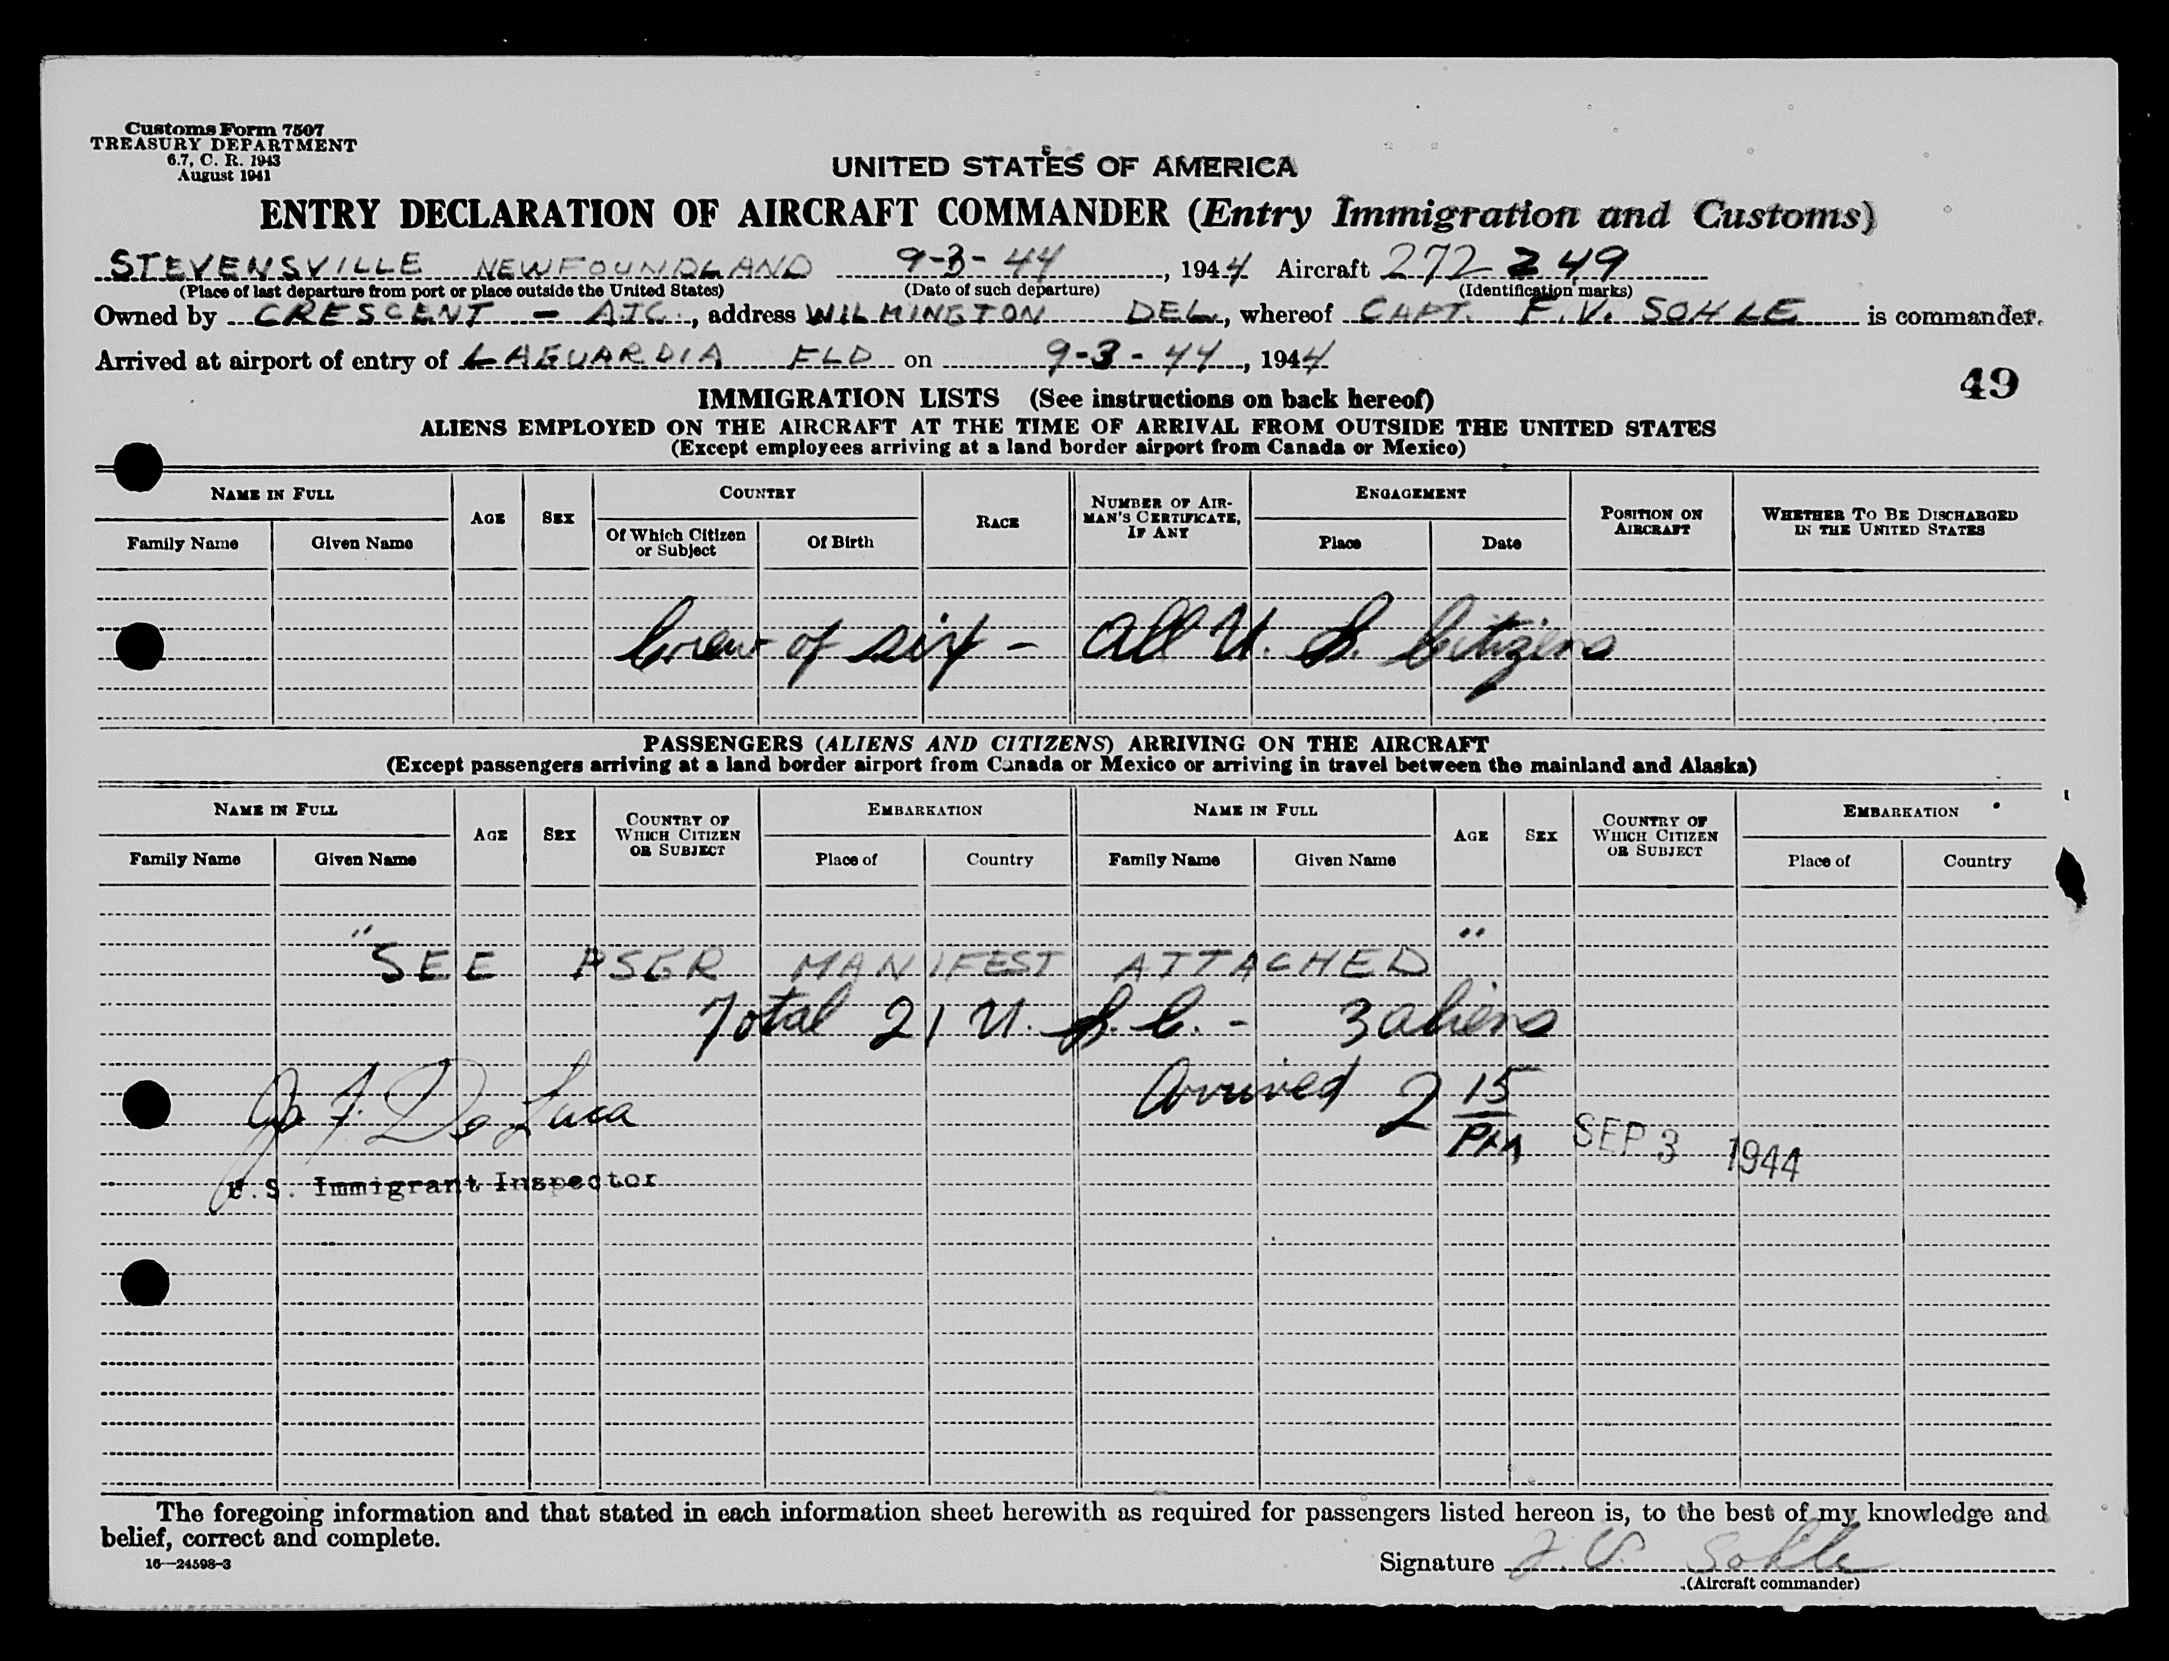 Customs Form 7507
TREASURY DEPARTMENT
6.7, C. R. 1943
August 1941
UNITED STATES OF AMERICA
ENTRY DECLARATION OF AIRCRAFT COMMANDER (Entry Immigration and Customs)
STEVENSVILLE NEWFOUNDLAND 9-3-44, 1944 Aircraft 272 249
(Place of last departure from port or place outside the United States) (Date of such departure) (Identification marks)
Owned by CRESCENT - ATC, address WILMINGTON DEL, whereof CAPT. F.V. SOHLE is commander.
Arrived at airport of entry of LAGUARDIA FLD on 9-3-44, 1944
49
IMMIGRATION LISTS (See instructions on back hereof)
ALIENS EMPLOYED ON THE AIRCRAFT AT THE TIME OF ARRIVAL FROM OUTSIDE THE UNITED STATES
(Except employees arriving at a land border airport from Canada or Mexico)
NAME IN FULL AGE SEX COUNTRY RACE NUMBER OF AIRMAN'S CERTIFICATE, IF ANY ENGAGEMENT POSITION ON AIRCRAFT WHETHER TO BE DISCHARGED IN THE UNITED STATES
Family Name Given Name Of Which Citizen or Subject Of Birth Place Date
Crew of six - All U. S. Citizens
PASSENGERS (ALIENS AND CITIZENS) ARRIVING ON THE AIRCRAFT
(Except passengers arriving at a land border airport from Canada or Mexico or arriving in travel between the mainland and Alaska)
NAME IN FULL AGE SEX COUNTRY OF WHICH CITIZEN OR SUBJECT EMBARKATION NAME IN FULL AGE SEX COUNTRY OF WHICH CITIZEN OR SUBJECT EMBARKATION
Family Name Given Name Place of Country Family Name Given Name Place of Country
"SEE PSGR MANIFEST ATTACHED"
Total 21 U. S. C. - 3 aliens
Arrived 2 15 PM SEP 3 1944
Jo F. De Luca
U.S. Immigrant Inspector
The foregoing information and that stated in each information sheet herewith as required for passengers listed hereon is, to the best of my knowledge and
belief, correct and complete.
16—24598-3
Signature F. V. Sohle
(Aircraft commander)